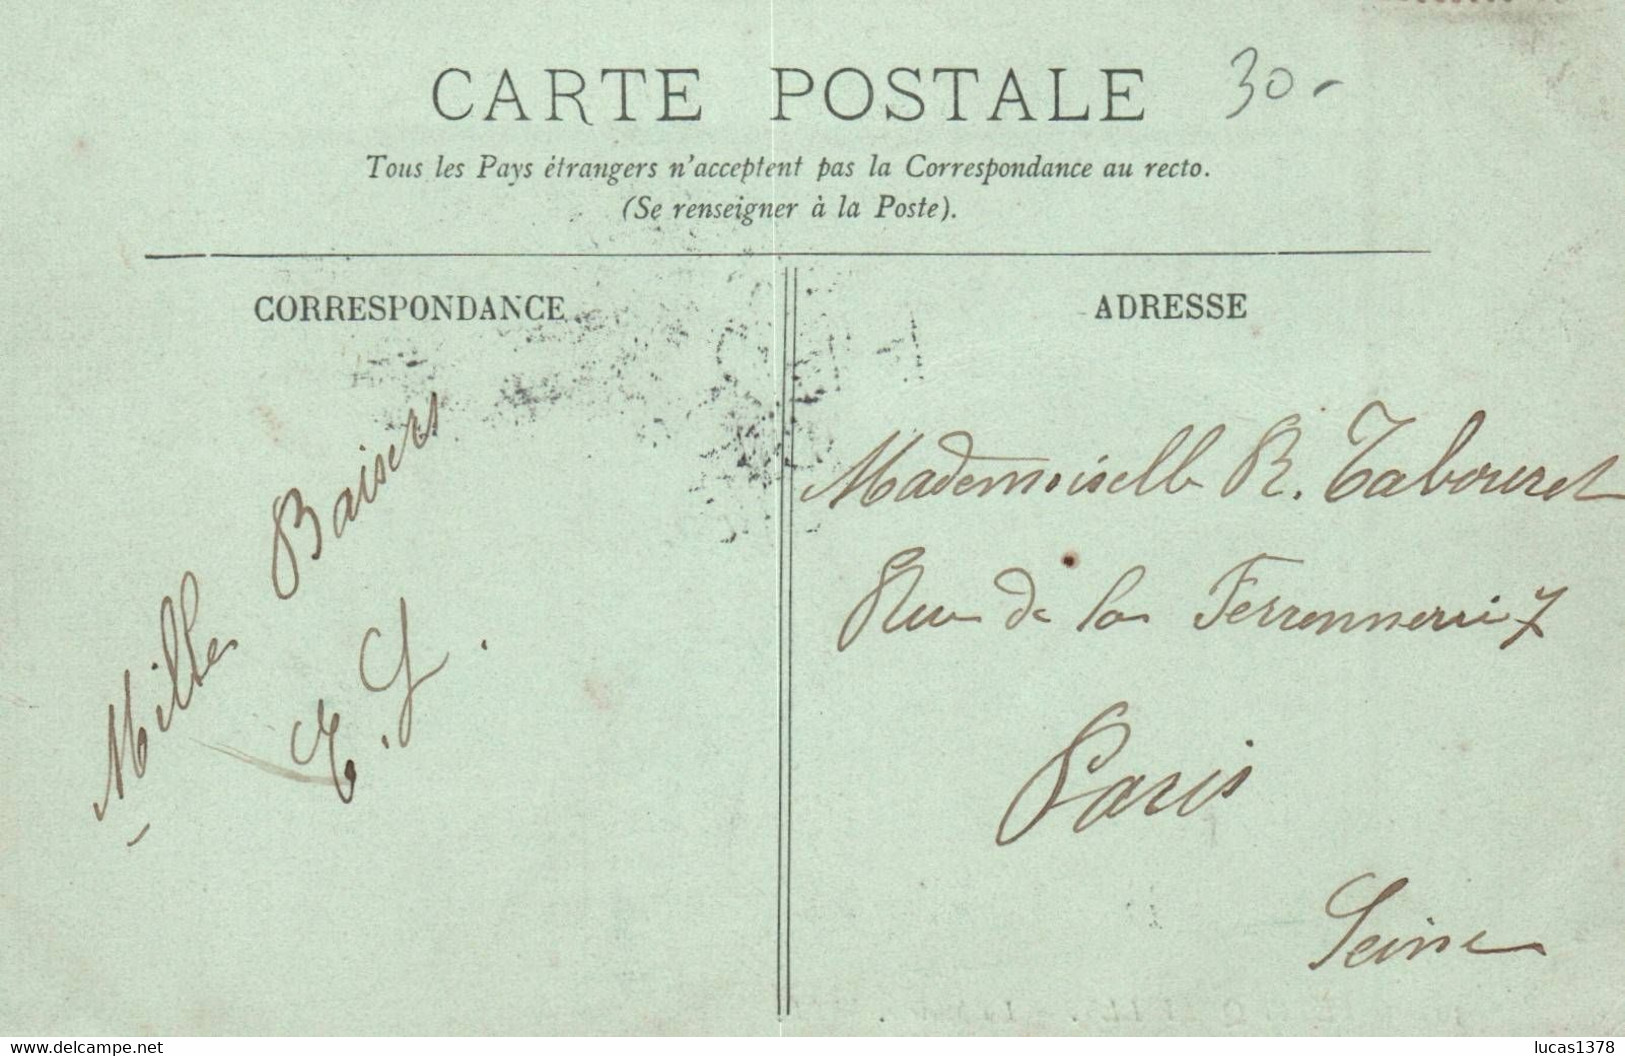 CARTE POSTALE 30-
Tous les Pays étrangers n'acceptent pas la Correspondance au recto.
(Se renseigner à la Poste).
CORRESPONDANCE
Mille Baisers
E. G.
ADRESSE
Mademoiselle R. Tabouret
Rue de la Ferronnerie 7
Paris
Seine
www.delcampe.net
lucas1378